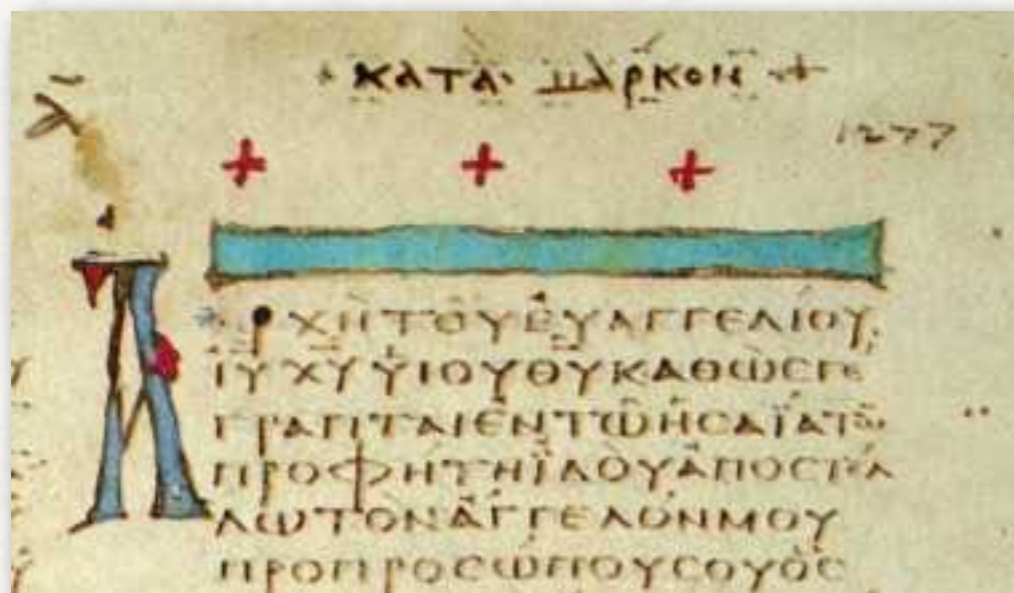 + ΚΑΤΑ ΜΑΡΚΟΝ +
1277
ΑΡΧΗ ΤΟΥ ΕΥΑΓΓΕΛΙΟΥ
ΙΥ ΧΥ ΥΙΟΥ ΘΥ ΚΑΘΩϹ ΓΕ
ΓΡΑΠΤΑΙ ΕΝ ΤΩ ΗϹΑΪΑ ΤΩ
ΠΡΟΦΗΤΗ ΪΔΟΥ ΑΠΟϹΤΕΛ
ΛΩ ΤΟΝ ΑΓΓΕΛΟΝ ΜΟΥ
ΠΡΟ ΠΡΟϹΩΠΟΥ ϹΟΥ ΟϹ